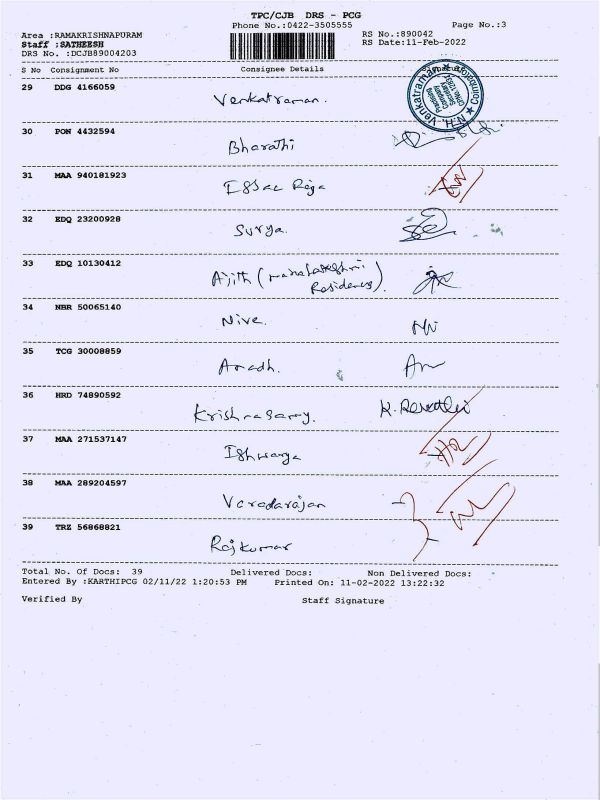 TPC/CJB DRS - PCG
Phone No.:0422-3505555
Page No.:3
Area :RAMAKRISHNAPURAM
RS No.:890042
Staff :SATHEESH
RS Date:11-Feb-2022
DRS No. :DCJB89004203
S No Consignment No Consignee Details
29 DDG 4166059 Venkatraman.
N.H. Venkatraman Coimbatore
Practising
Company
Secretary
30 PON 4432594 Bharathi
31 MAA 940181923 Issac Raja
32 EDQ 23200928 Surya.
33 EDQ 10130412 Ajith (mahalakshmi
Residency).
34 NBR 50065140 Nive.
35 TCG 30008859 Aradh.
36 HRD 74890592 Krishnasamy. K. Revathi
37 MAA 271537147 Ishwarya
38 MAA 289204597 Varadarajan
39 TRZ 56868821 Rajkumar
Total No. Of Docs: 39 Delivered Docs: Non Delivered Docs:
Entered By :KARTHIPCG 02/11/22 1:20:53 PM Printed On: 11-02-2022 13:22:32
Verified By Staff Signature